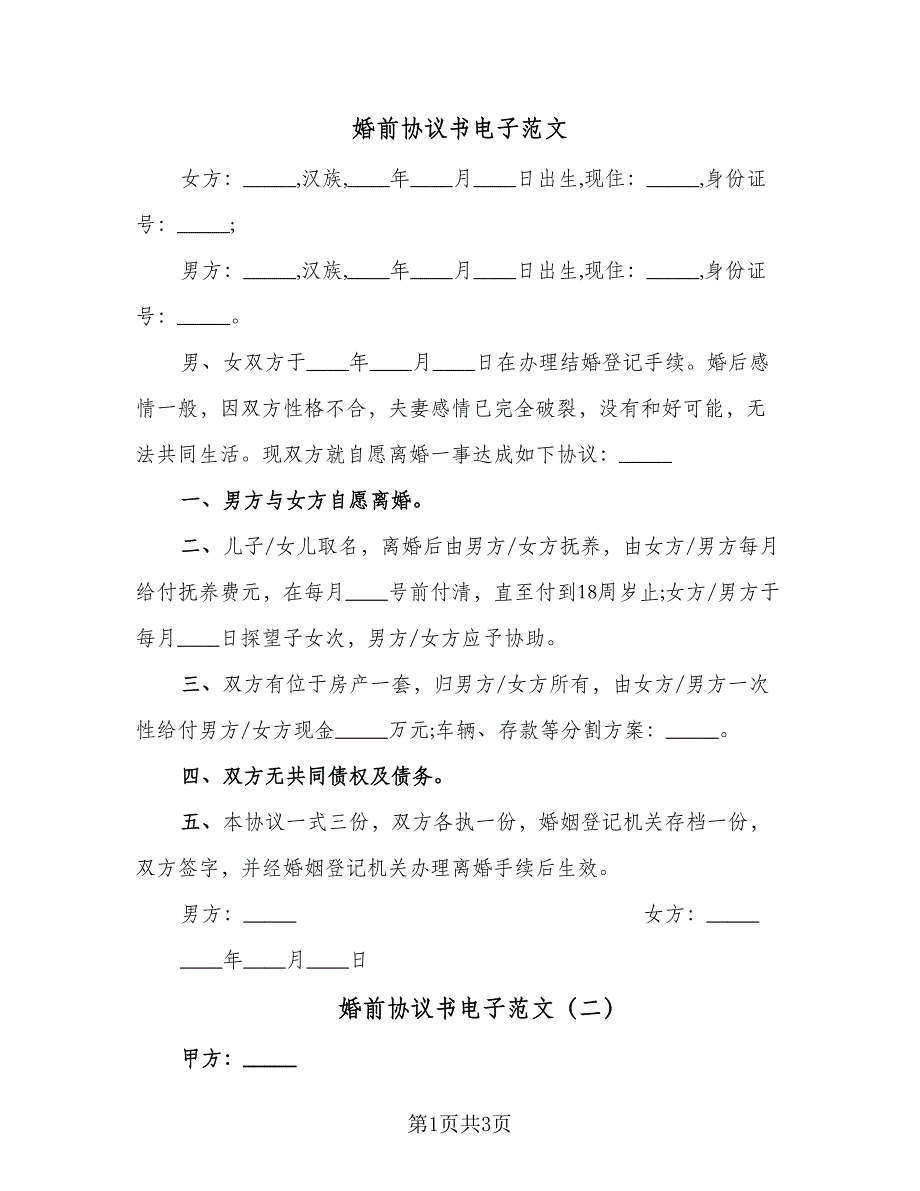 婚前协议书电子范文
女方：_____,汉族,____年____月____日出生,现住：_____,身份证
号：_____;
男方：_____,汉族,____年____月____日出生,现住：_____,身份证
号：_____。
男、女双方于____年____月____日在办理结婚登记手续。婚后感
情一般，因双方性格不合，夫妻感情已完全破裂，没有和好可能，无
法共同生活。现双方就自愿离婚一事达成如下协议：_____
一、男方与女方自愿离婚。
二、儿子/女儿取名，离婚后由男方/女方抚养，由女方/男方每月
给付抚养费元，在每月____号前付清，直至付到18周岁止;女方/男方于
每月____日探望子女次，男方/女方应予协助。
三、双方有位于房产一套，归男方/女方所有，由女方/男方一次
性给付男方/女方现金_____万元;车辆、存款等分割方案：_____。
四、双方无共同债权及债务。
五、本协议一式三份，双方各执一份，婚姻登记机关存档一份，
双方签字，并经婚姻登记机关办理离婚手续后生效。
男方：_____ 女方：_____
____年____月____日
婚前协议书电子范文（二）
甲方：_____
第1页共3页